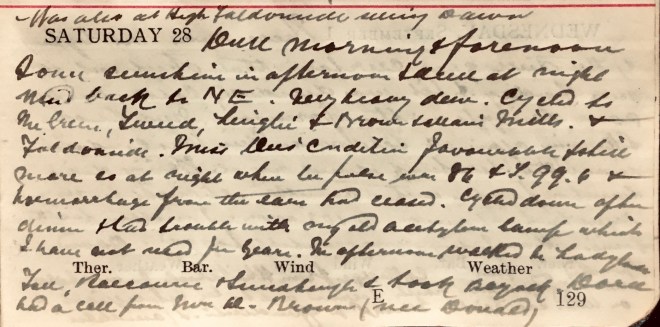 Was also at High Faldonside seeing Dawn
SATURDAY 28 Dull morning & forenoon
Some sunshine in afternoon & dull at night
Wind back to N E. Very heavy dew. Cycled to
Tweed, & Mills. &
Faldonside. Miss condition favourable & still
more so at night when her pulse was 86 & T. 99.6 &
haemorrhage from the ears had ceased. Cycled down after
dinner & had trouble with my old acetylene lamp which
I have not used for years. In afternoon walked to
Ther. Bar. Wind Weather
& & took
had a call from Mrs Brown (née
E
129